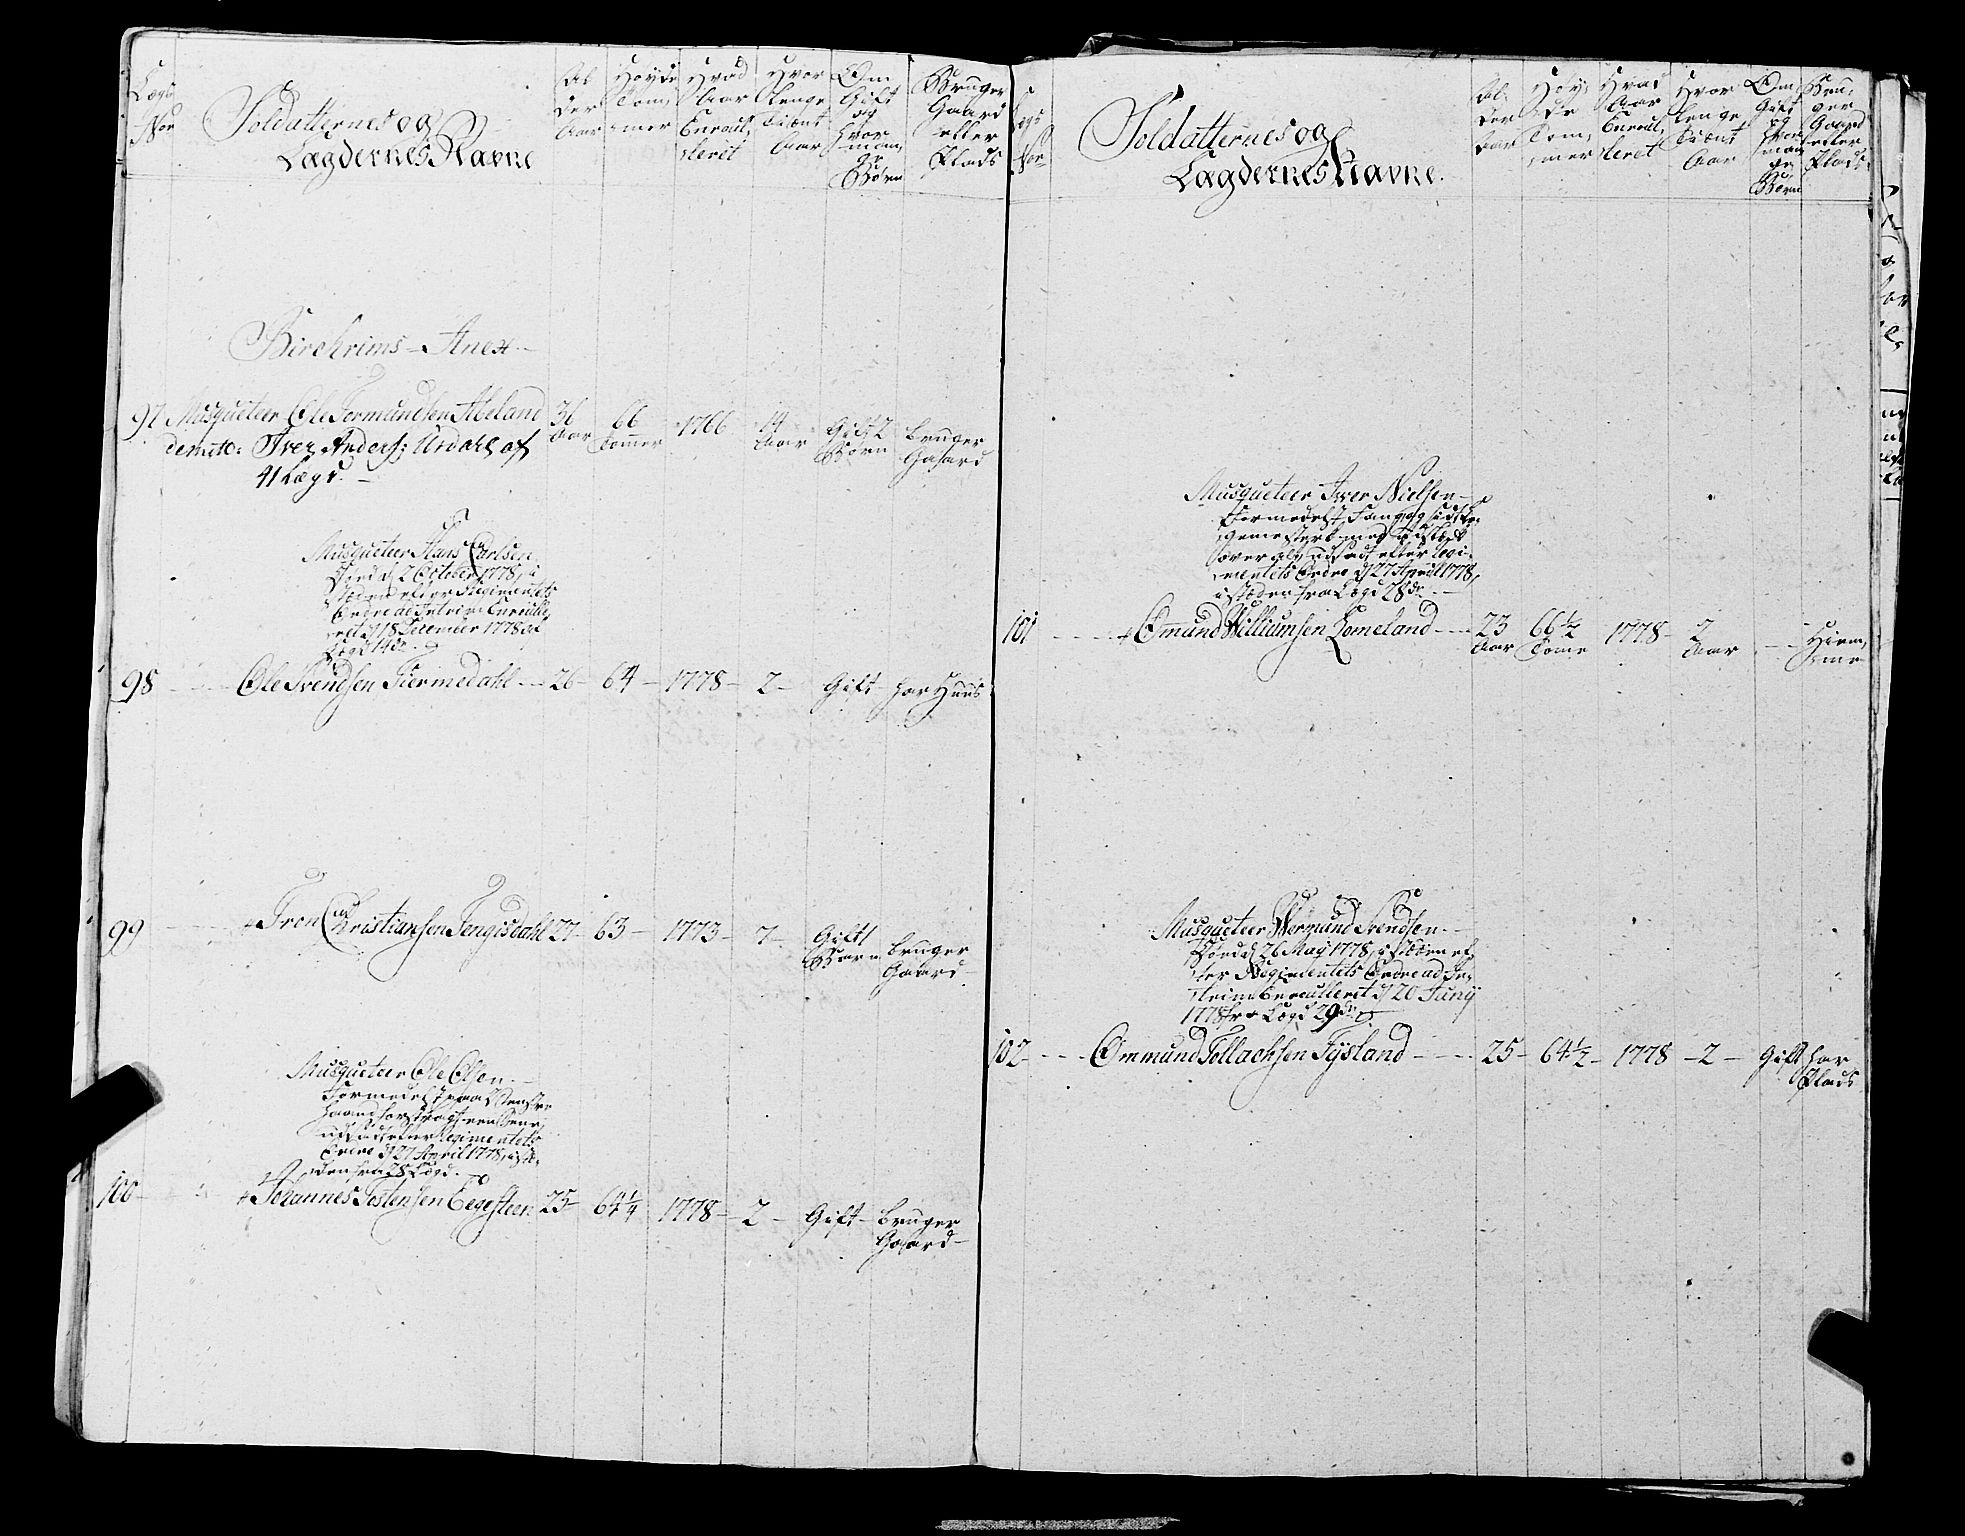 Lægs Nor
Soldatternes og
Lægdernes Navne
Al der Aar
Høyde Tom, mer
Hvad Aar Enroul, leret
Hvor lenge Tient Aar
Om Gift og Hvor man, ge Børn
Bruger Gaard eller Plads
Birchrims - Anex
97 Musqueteer Ole Tormundsen Abeland 36 Aar 66 Tommer 1766 14 Aar Gift 2 Børn bruger Gaard
demito: Iver Anders: Urdahl af
41 Lægd.
Musqueteer Hans Carlsen
Døed d 2 October 1778, i
stæden efter Regimentets
Ordre ad Interim Enroulle,
ret d 18 December 1778 af
Lægd 14de
98 Ole Svendsen Tiermedahl 26 64 1778 2 Gift har Huus
99 Tron Christiansen Tengisdahl 27 63 1773 7 Gift 1 Barn bruger Gaard
Musqueteer Ole Olsen
Formedelst paa Venstre
Haand
udsadt efter Regimentets
Ordre d 27 April 1778, i stæ,
den fra 28 Lægd
100 Johannes Tostensen Eegesteen 25 64 1/4 1778 2 Gift bruger Gaard
Lægs Nor
Soldatternes og
Lægdernes Navne.
Al, der Aar
Høy, de Tom, mer
Hvad Aar Enroul, leret
Hvor lenge Tient Aar
Om Gift og Hvor man ge Børn
Bru, ger Gaard eller Plads
Musqueteer Iver Nielsen
Formedelst
over alt udsadt efter Regi,
mentets Ordre d 27 April 1778,
i stæden fra Lægd 28de
101 Omund Williumsen Lomeland 23 Aar 66 1/2 Tome 1778 2 Aar Hiem, me
Musqueteer Wermund Svendsen
Døed d 26 May 1778, i stæden ef,
ter Regimentets Ordre ad In,
terim Enroulleret d 20 Junij
1778 fra Lægd 29de
102 Ommund Tollachsen Tysland 25 64 1/2 1778 2 Gift har Plads